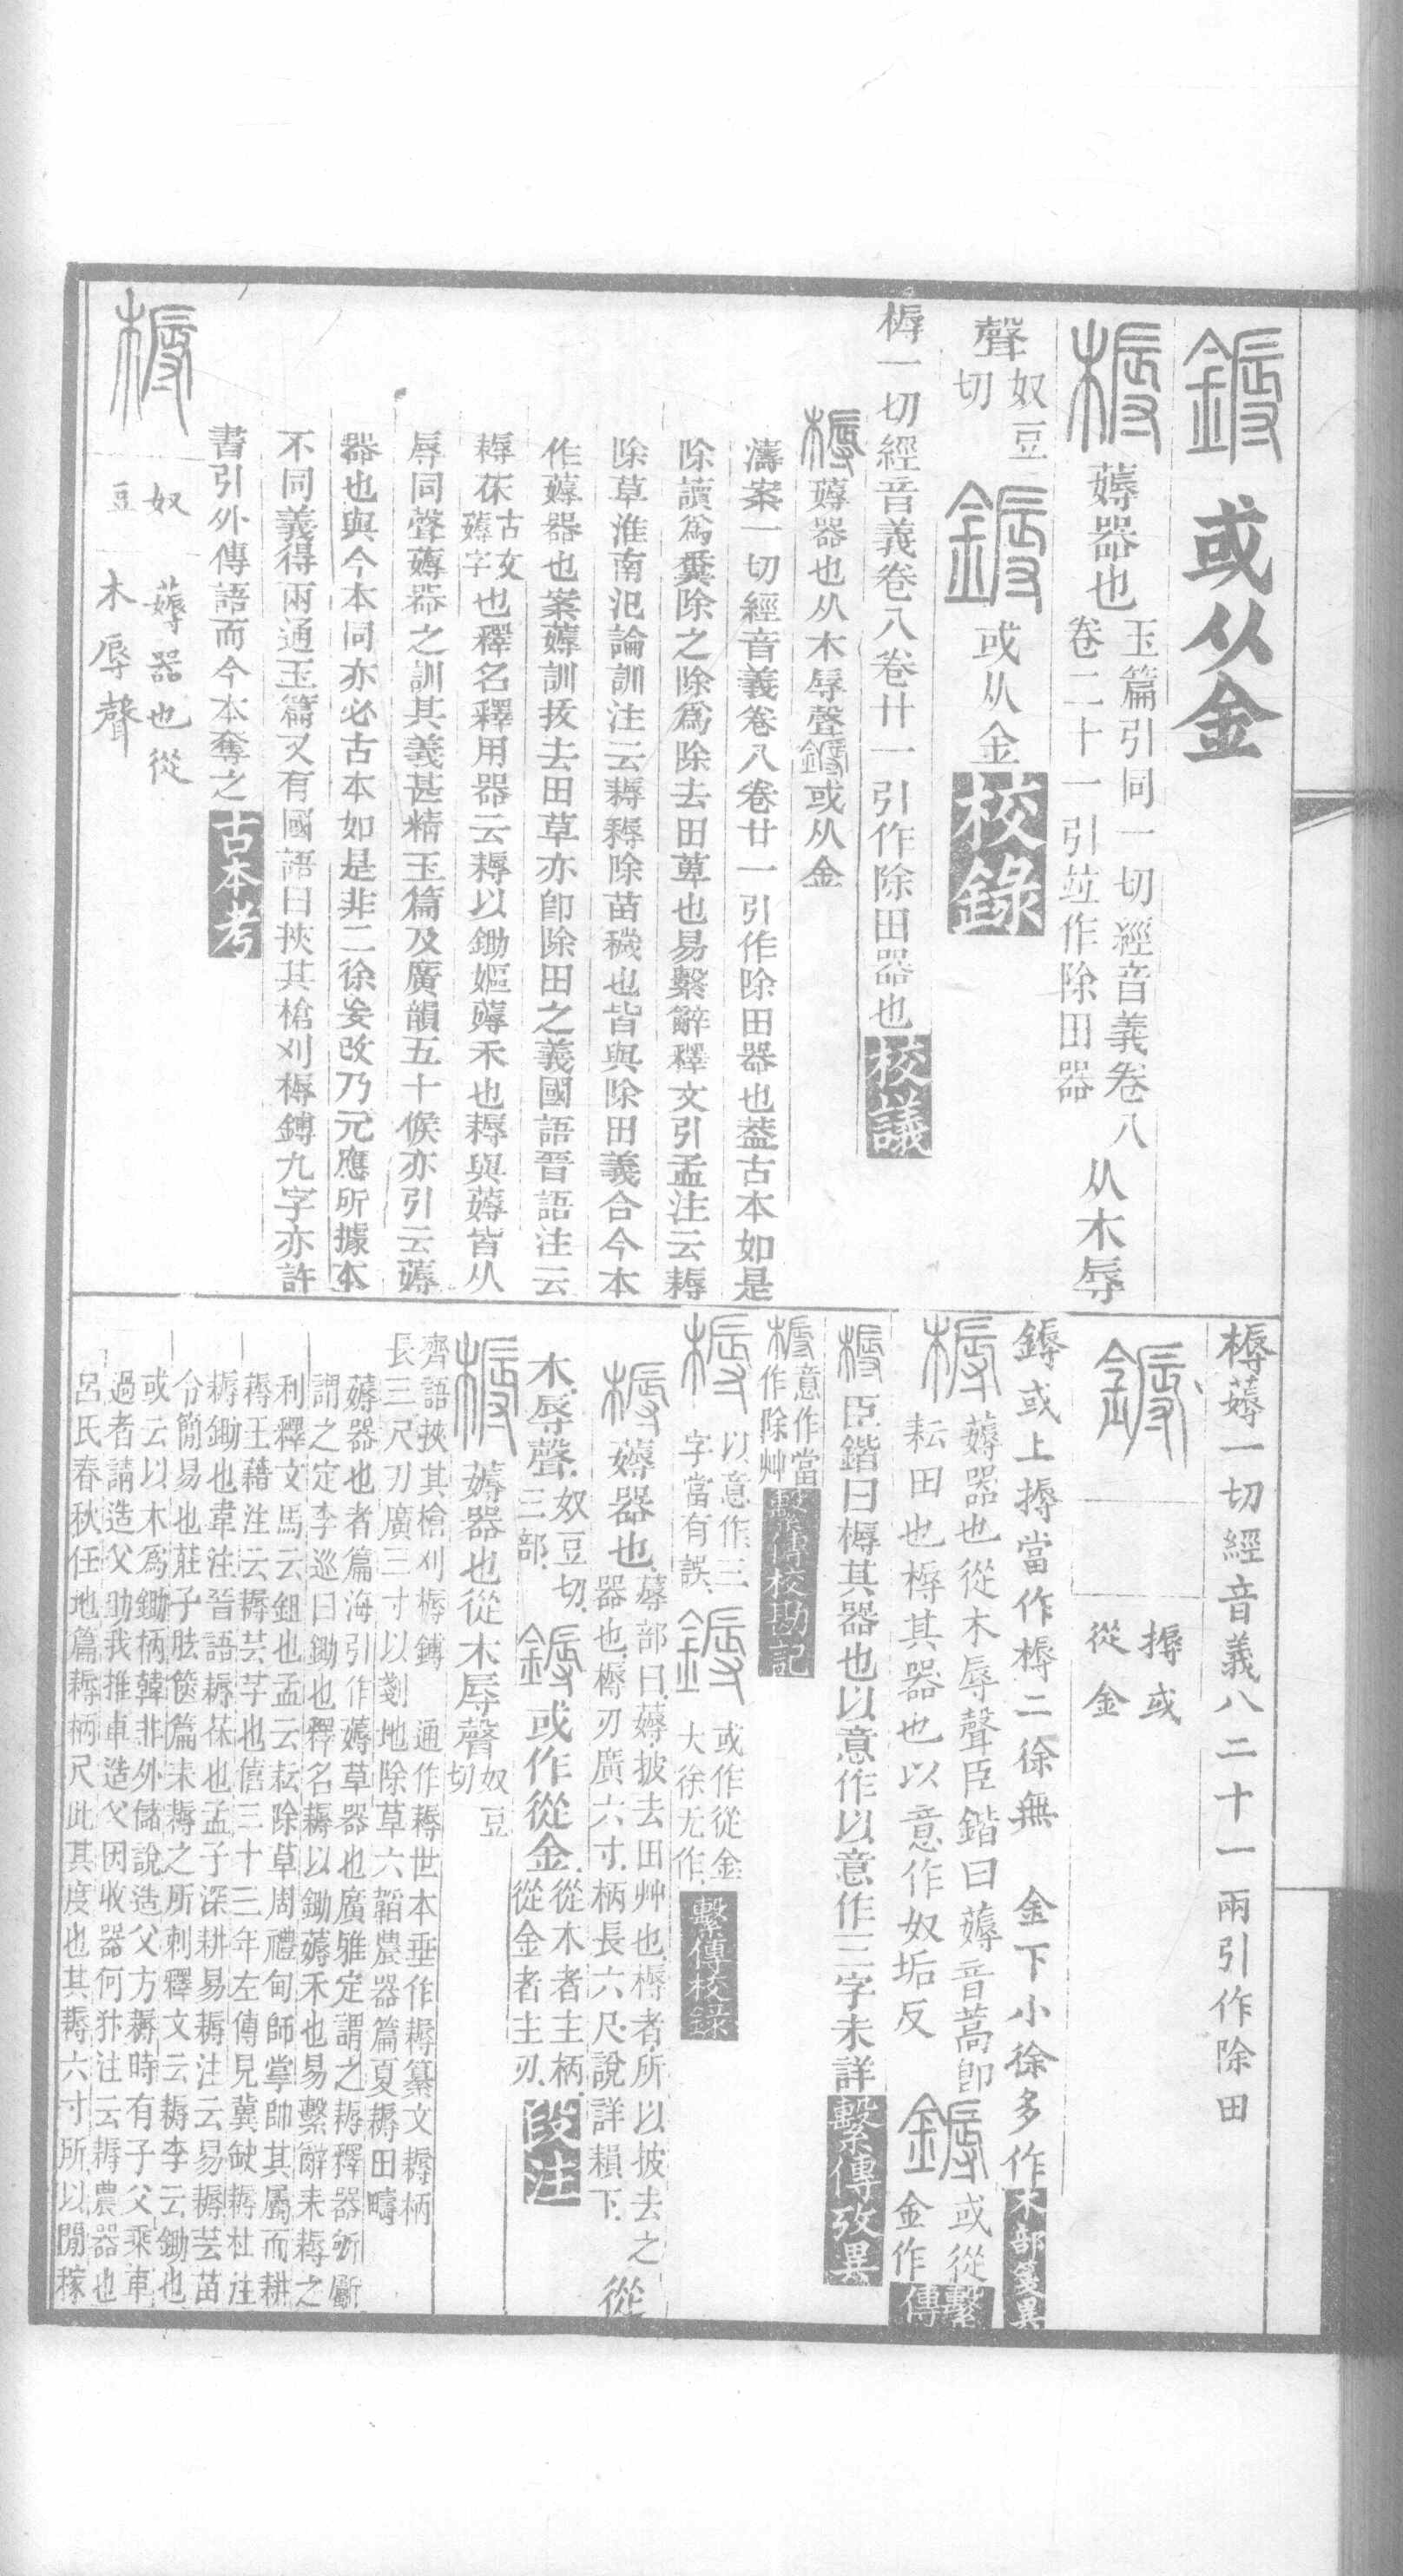 鎒 或从金
槈 薅器也 玉篇引同一切經音義卷八
卷二十一引竝作除田器 从木辱
聲 奴豆
切 鎒 或从金 校錄
槈一切經音義卷八卷廿一引作除田器也 校議
槈 薅器也从木辱聲鎒或从金
濤案一切經音義卷八卷廿一引作除田器也葢古本如是
除讀爲糞除之除爲除去田草也易繫辭釋文引孟注云耨
除草淮南氾論訓注云耨耨除苗穢也皆與除田義合今本
作薅器也案薅訓拔去田草亦卽除田之義國語晉語注云
耨茠 古文
薅字 也釋名釋用器云耨以鋤嫗薅禾也耨與薅皆从
辱同聲薅器之訓其義甚精玉篇及廣韻五十候亦引云薅
器也與今本同亦必古本如是非二徐妄改乃元應所據本
不同義得兩通玉篇又有國語曰挾其槍刈槈鎛九字亦許
書引外傳語而今本奪之 古本考
槈 奴
豆 薅器也從
木辱聲
槈薅一切經音義八二十一兩引作除田
鎒 搙或
從金
鎒或上搙當作槈二徐無 金下小徐多作 木部箋異
槈 薅器也從木辱聲臣鍇曰薅音蒿卽
耘田也槈其器也以意作奴垢反 鎒 或從
金作 繫傳
槈 臣鍇曰槈其器也以意作以意作三字未詳 繫傳攷異
槈 意作當
作除艸 繫傳校勘記
槈 以意作三
字當有誤 鎒 或作從金
大徐无作 繫傳校錄
槈 薅器也 薅部曰薅披去田艸也槈者所以披去之
器也槈刃廣六寸柄長六尺說詳賴下 從
木辱聲 奴豆切
三部 鎒 或作從金 從木者主柄
從金者主刃 段注
槈 薅器也從木辱聲 奴豆
切
齊語挾其槍刈槈鎛 通作耨世本垂作耨纂文耨柄
長三尺刃廣三寸以剗地除草六韜農器篇夏耨田疇
薅器也者篇海引作薅草器也廣雅定謂之耨釋器斪斸
謂之定李巡曰鋤也釋名耨以鋤薅禾也易繫辭耒耨之
利釋文馬云鉏也孟云耘除草周禮甸師掌帥其屬而耕
耨王藉注云耨芸芓也僖三十三年左傳見冀缺耨杜注
耨鋤也韋注晉語耨茠也孟子深耕易耨注云易耨芸苗
令簡易也莊子胠篋篇耒耨之所刺釋文云耨李云鋤也
或云以木爲鋤柄韓非外儲說造父方耨時有子父乘車
過者請造父助我推車造父因收器何犿注云耨農器也
呂氏春秋任地篇耨柄尺此其度也其耨六寸所以閒稼